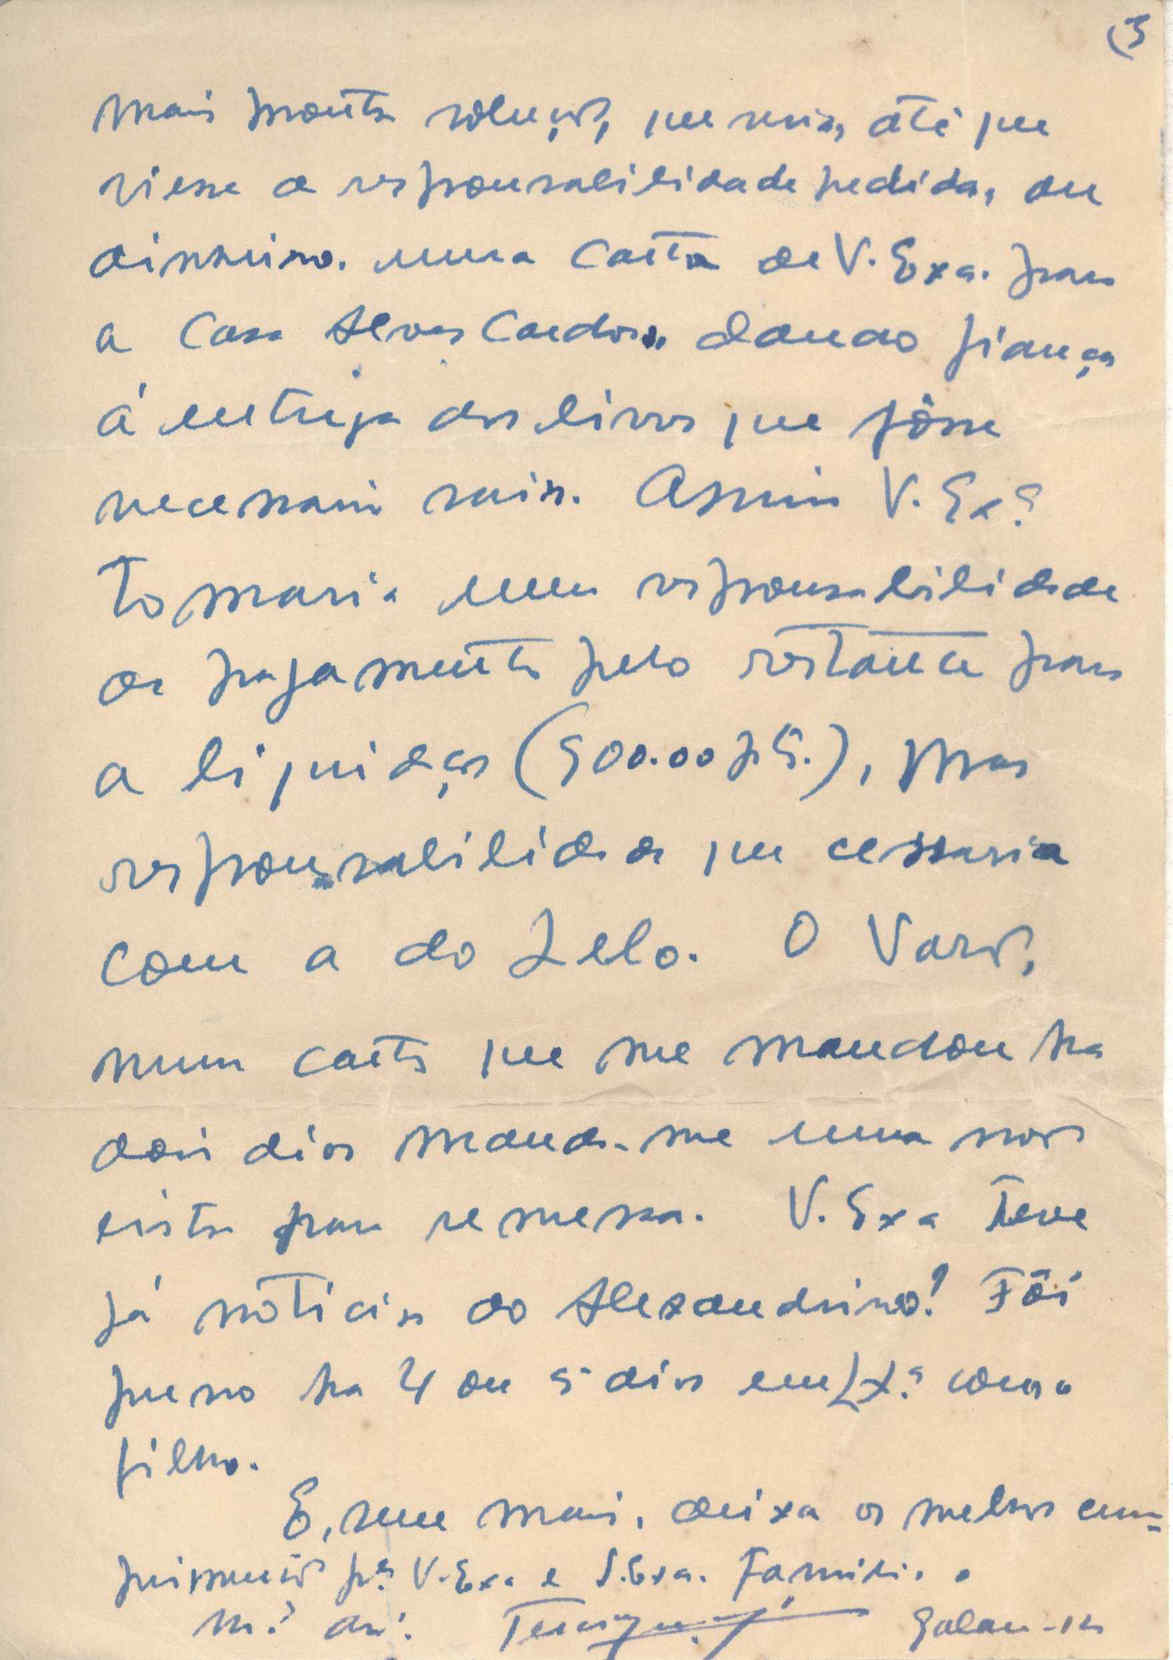 (3
mais pronta solução, que seria, até que
viesse a responsabilidade pedida, ou
dinheiro. uma carta de V. Exa. para
a Casa Alves Cardoso, dando fiança
á entrega dos livros que fôsse
necessario sair. Assim V. Exª
tomaria uma responsabilidade
de pagamento pelo restante para
a liquidação (500.00 ), mas
responsabilidade que cessaria
com a do Zelo. O Varão,
numa carta que me mandou ha
dois dias manda-me uma nova
lista para remessa. V. Exa teve
já noticias do Alexandrino? Fôi
preso ha 4 ou 5 dias em Lxª com o
filho.
E, sem mais, deixa os melhores cum-
primentos pª V. Exa. e S. Exa. Familia. o
mtº